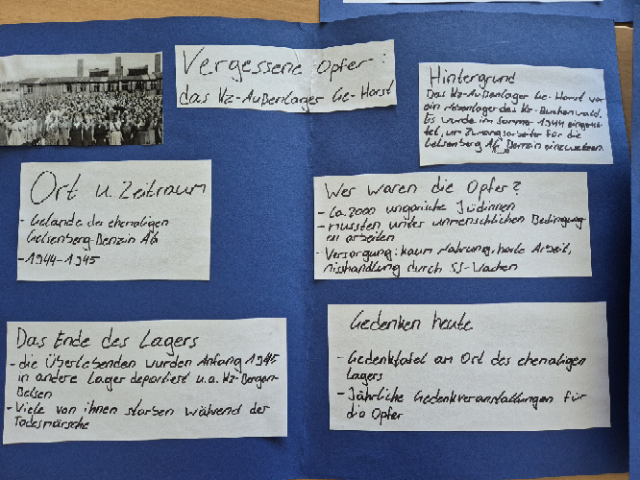 Vergessene Opfer:
das KZ-Außenlager Ge-Horst
Hintergrund
Das KZ-Außenlager Ge-Horst war
ein Nebenlager des KZ-Buchenwald.
Es wurde im Sommer 1944 eingerich-
tet, um Zwangsarbeiter für die
Gelsenberg AG Benzin einzusetzen.
Ort u. Zeitraum
- Gelände der ehemaligen
Gelsenberg-Benzin AG
- 1944-1945
Wer waren die Opfer?
- Ca. 2000 ungarische Jüdinnen
- mussten unter unmenschlichen Bedingung
en arbeiten
- Versorgung: kaum Nahrung, harte Arbeit,
misshandlung durch SS-Wachen
Das Ende des Lagers
- die Überlebenden wurden Anfang 1945
in andere Lager deportiert u.a. KZ-Bergen-
Belsen
- Viele von ihnen starben während der
Todesmärsche
Gedenken heute
- Gedenktafel am Ort des ehemaligen
Lagers
- Jährliche Gedenkveranstaltungen für
die Opfer